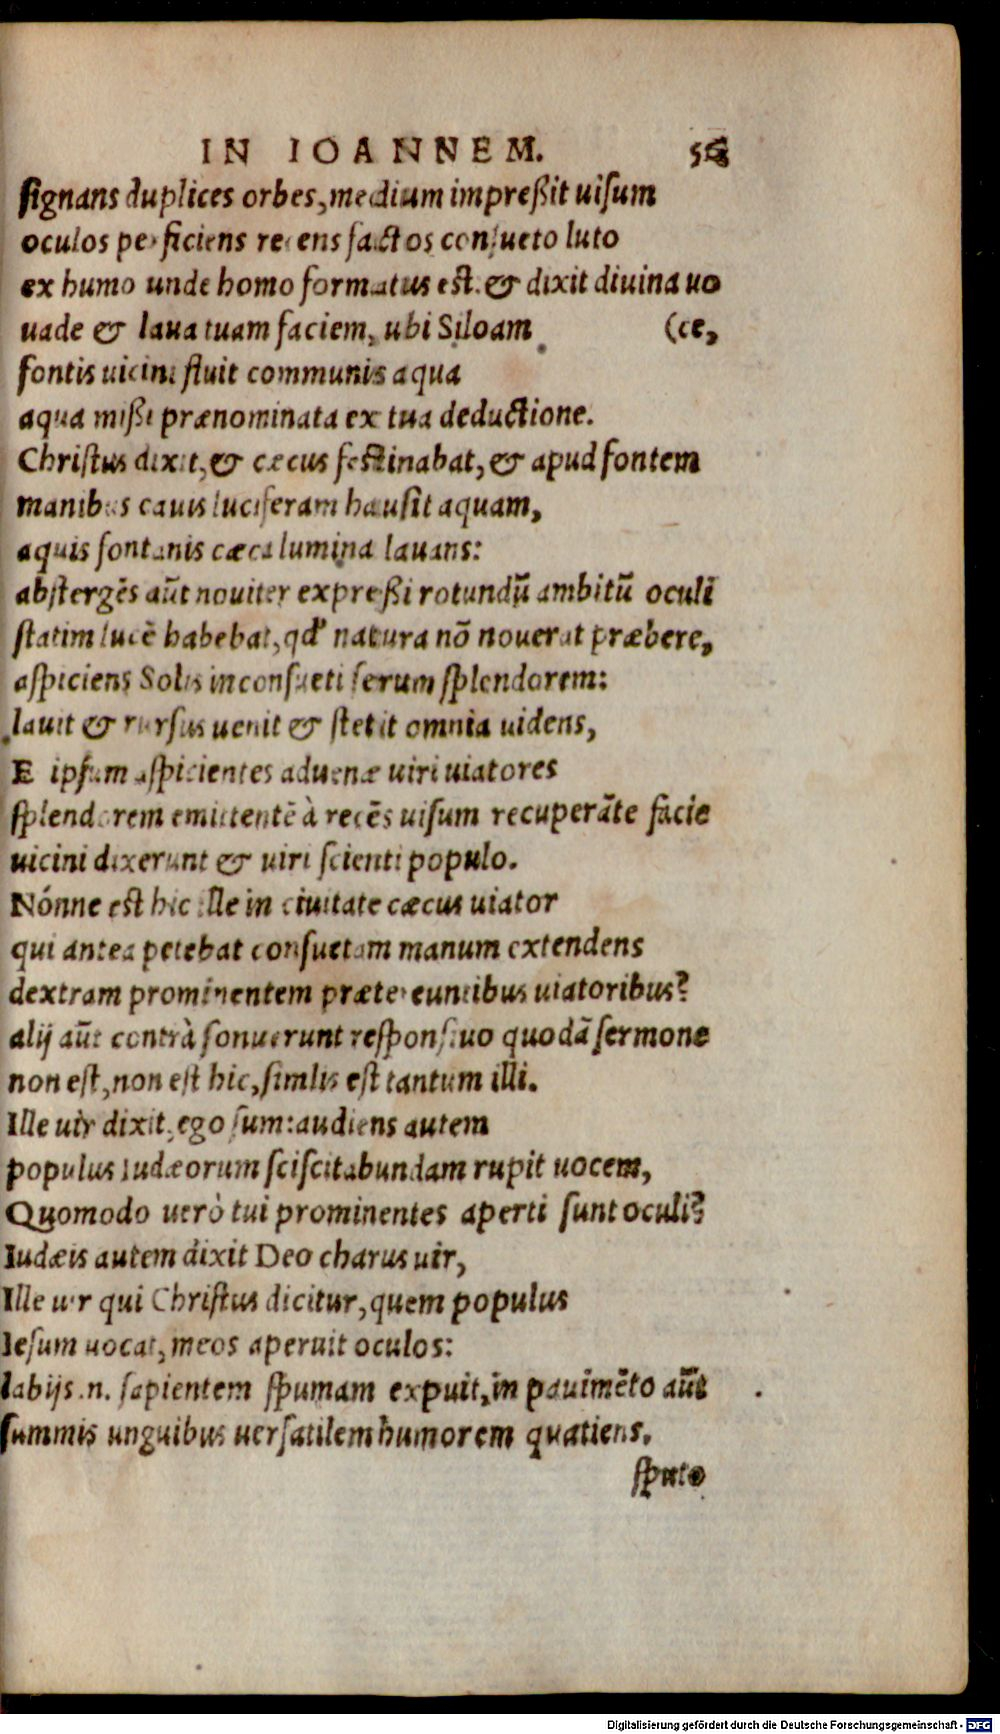 IN IOANNEM.
signans duplices orbes, medium impreßit uisum
oculos perficiens recens factos consueto luto
ex humo unde homo formatus est. & dixit diuina uo
uade & laua tuam faciem, ubi Siloam (ce,
fontis uicini fluit communis aqua
aqua mißi prænominata ex tua deductione.
Christus dixit, & cæcus festinabat, & apud fontem
manibus cauis luciferam hausit aquam,
aquis fontanis cæca lumina lauans:
abstergẽs aũt nouiter expreßi rotundũ ambitũ oculi
statim lucẽ habebat, qđ natura nõ nouerat præbere,
aspiciens Solis inconsueti serum splendorem:
lauit & rursus uenit & stetit omnia uidens,
E ipsum aspicientes aduenæ uiri uiatores
splendorem emittentẽ à recẽs uisum recuperãte facie
uicini dixerunt & uiri scienti populo.
Nónne est hic ille in ciuitate cæcus uiator
qui antea petebat consuetam manum extendens
dextram prominentem prætereuntibus uiatoribus?
alij aũt contrà sonuerunt responsiuo quodã sermone
non est, non est hic, simlis est tantum illi.
Ille uir dixit, ego sum: audiens autem
populus Iudæorum sciscitabundam rupit uocem,
Quomodo uerò tui prominentes aperti sunt oculi?
Iudæis autem dixit Deo charus uir,
Ille uir qui Christus dicitur, quem populus
Iesum uocat, meos aperuit oculos:
labijs .n. sapientem spumam expuit, in pauimẽto aũt
summis unguibus uersatilem humorem quatiens.
sputo
Digitalisierung gefördert durch die Deutsche Forschungsgemeinschaft - DFG